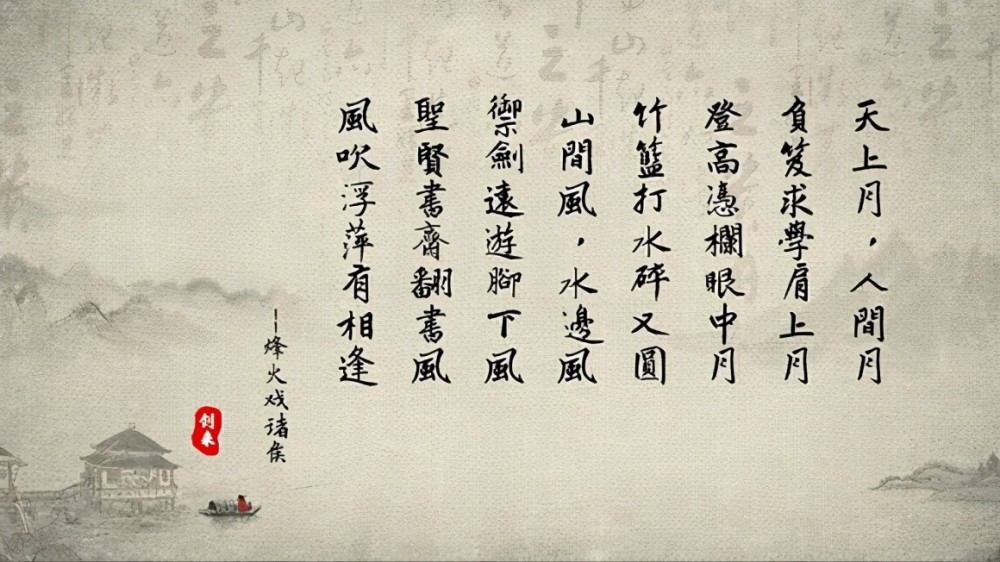 天上月，人間月
負笈求學肩上月
登高憑欄眼中月
竹籃打水碎又圓
山間風，水邊風
御劍遠遊腳下風
聖賢書齋翻書風
風吹浮萍有相逢
—烽火戏诸侯
剑来